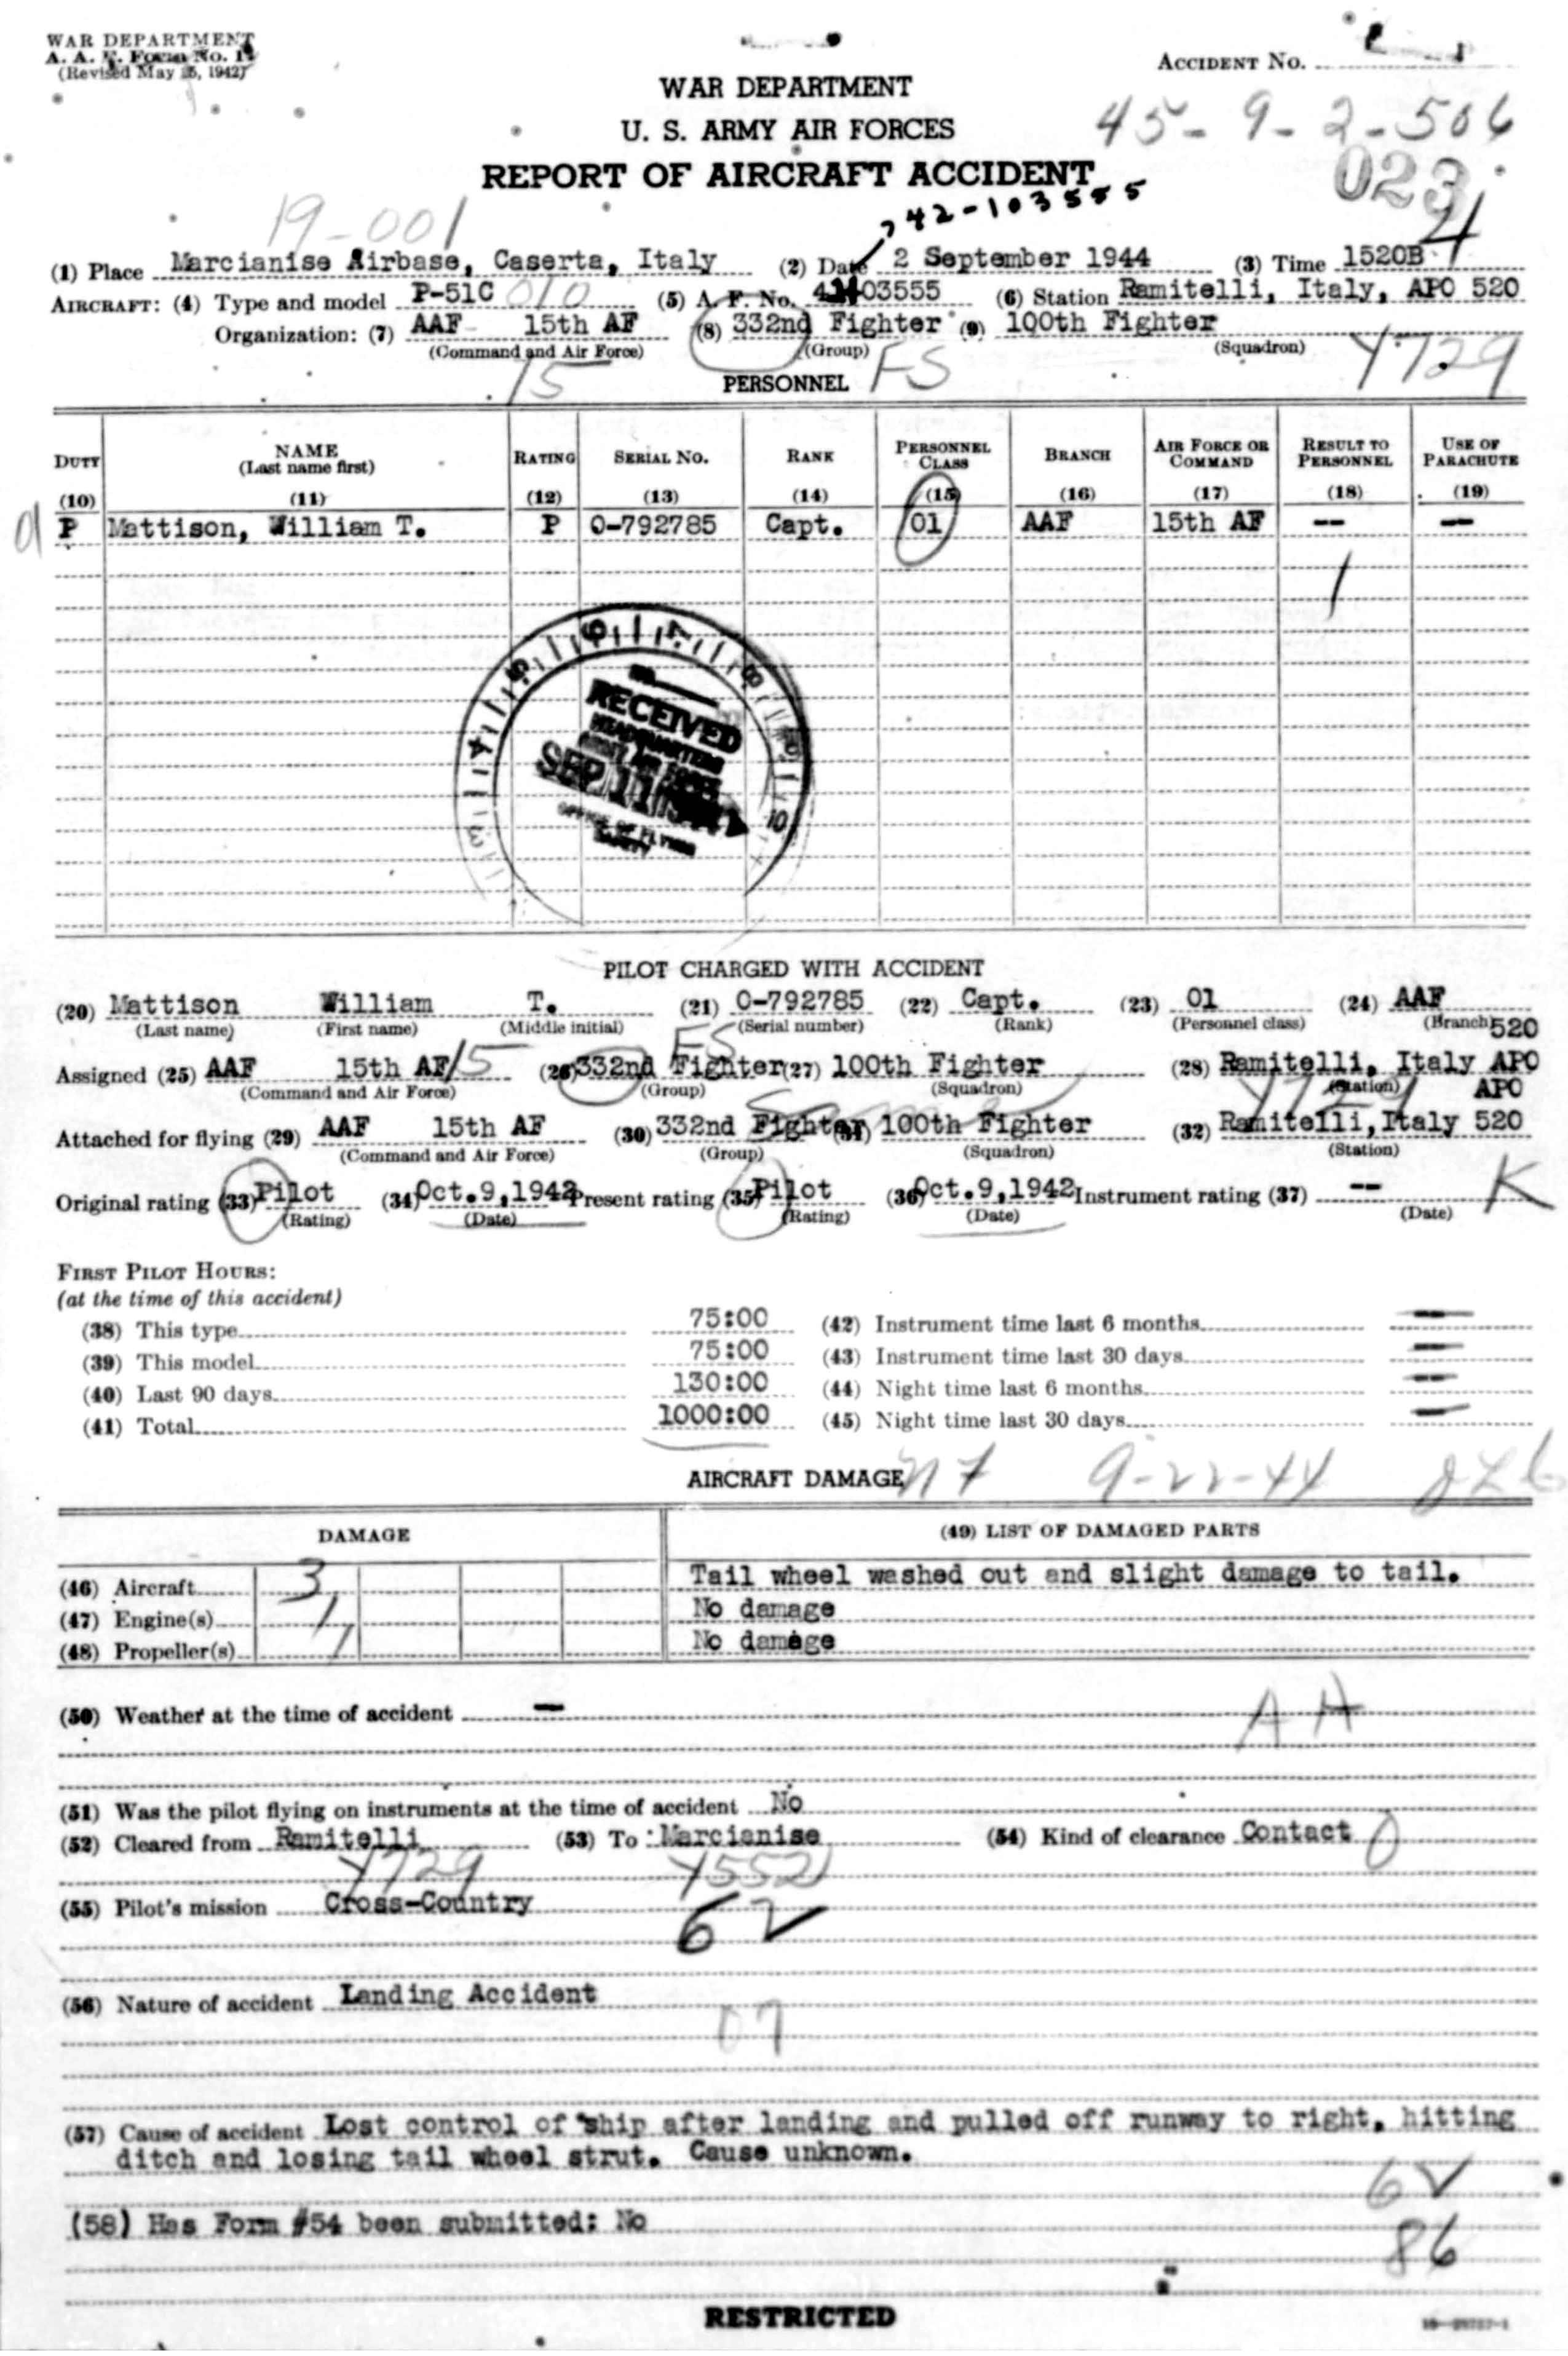 WAR DEPARTMENT
A. A. F. Form No. 14
(Revised May 15, 1942)
ACCIDENT No.
WAR DEPARTMENT
U. S. ARMY AIR FORCES
REPORT OF AIRCRAFT ACCIDENT
45-9-2-506
023
4
19-001
42-103555
(1) Place Marcianise Airbase, Caserta, Italy (2) Date 2 September 1944 (3) Time 1520B
AIRCRAFT: (4) Type and model P-51C 010 (5) A. F. No. 03555 (6) Station Ramitelli, Italy, APO 520
Organization: (7) AAF 15th AF (8) 332nd Fighter (9) 100th Fighter
(Command and Air Force) (Group) (Squadron)
15 FS Y729
PERSONNEL
DUTY NAME (Last name first) RATING SERIAL NO. RANK PERSONNEL CLASS BRANCH AIR FORCE OR COMMAND RESULT TO PERSONNEL USE OF PARACHUTE
(10) (11) (12) (13) (14) (15) (16) (17) (18) (19)
P Mattison, William T. P O-792785 Capt. 01 AAF 15th AF -- --
1
3 4 5 6 7 8 9 10
RECEIVED
HEADQUARTERS
ARMY AIR FORCES
SEP 11 1944
OFFICE OF FLYING
SAFETY
PILOT CHARGED WITH ACCIDENT
(20) Mattison William T. (21) O-792785 (22) Capt. (23) 01 (24) AAF
(Last name) (First name) (Middle initial) (Serial number) (Rank) (Personnel class) (Branch) 520
Assigned (25) AAF 15th AF 15 (26) 332nd Fighter FS (27) 100th Fighter (28) Ramitelli, Italy APO
(Command and Air Force) (Group) (Squadron) (Station) APO
Y729
Attached for flying (29) AAF 15th AF (30) 332nd Fighter (31) 100th Fighter (32) Ramitelli, Italy 520
(Command and Air Force) (Group) (Squadron) (Station)
Original rating (33) Pilot (34) Oct. 9, 1942 Present rating (35) Pilot (36) Oct. 9, 1942 Instrument rating (37) -- K
(Rating) (Date) (Rating) (Date) (Date)
FIRST PILOT HOURS:
(at the time of this accident)
(38) This type 75:00 (42) Instrument time last 6 months —
(39) This model 75:00 (43) Instrument time last 30 days —
(40) Last 90 days 130:00 (44) Night time last 6 months —
(41) Total 1000:00 (45) Night time last 30 days —
AIRCRAFT DAMAGE 9-22-44
DAMAGE (49) LIST OF DAMAGED PARTS
(46) Aircraft 3 Tail wheel washed out and slight damage to tail.
(47) Engine(s) 1 No damage
(48) Propeller(s) 1 No damage
(50) Weather at the time of accident —
A H
(51) Was the pilot flying on instruments at the time of accident No
(52) Cleared from Ramitelli (53) To Marcianise (54) Kind of clearance Contact 0
Y729 Y552
(55) Pilot's mission Cross-Country
62
(56) Nature of accident Landing Accident
07
(57) Cause of accident Lost control of ship after landing and pulled off runway to right, hitting
ditch and losing tail wheel strut. Cause unknown.
62
(58) Has Form #54 been submitted: No
86
RESTRICTED